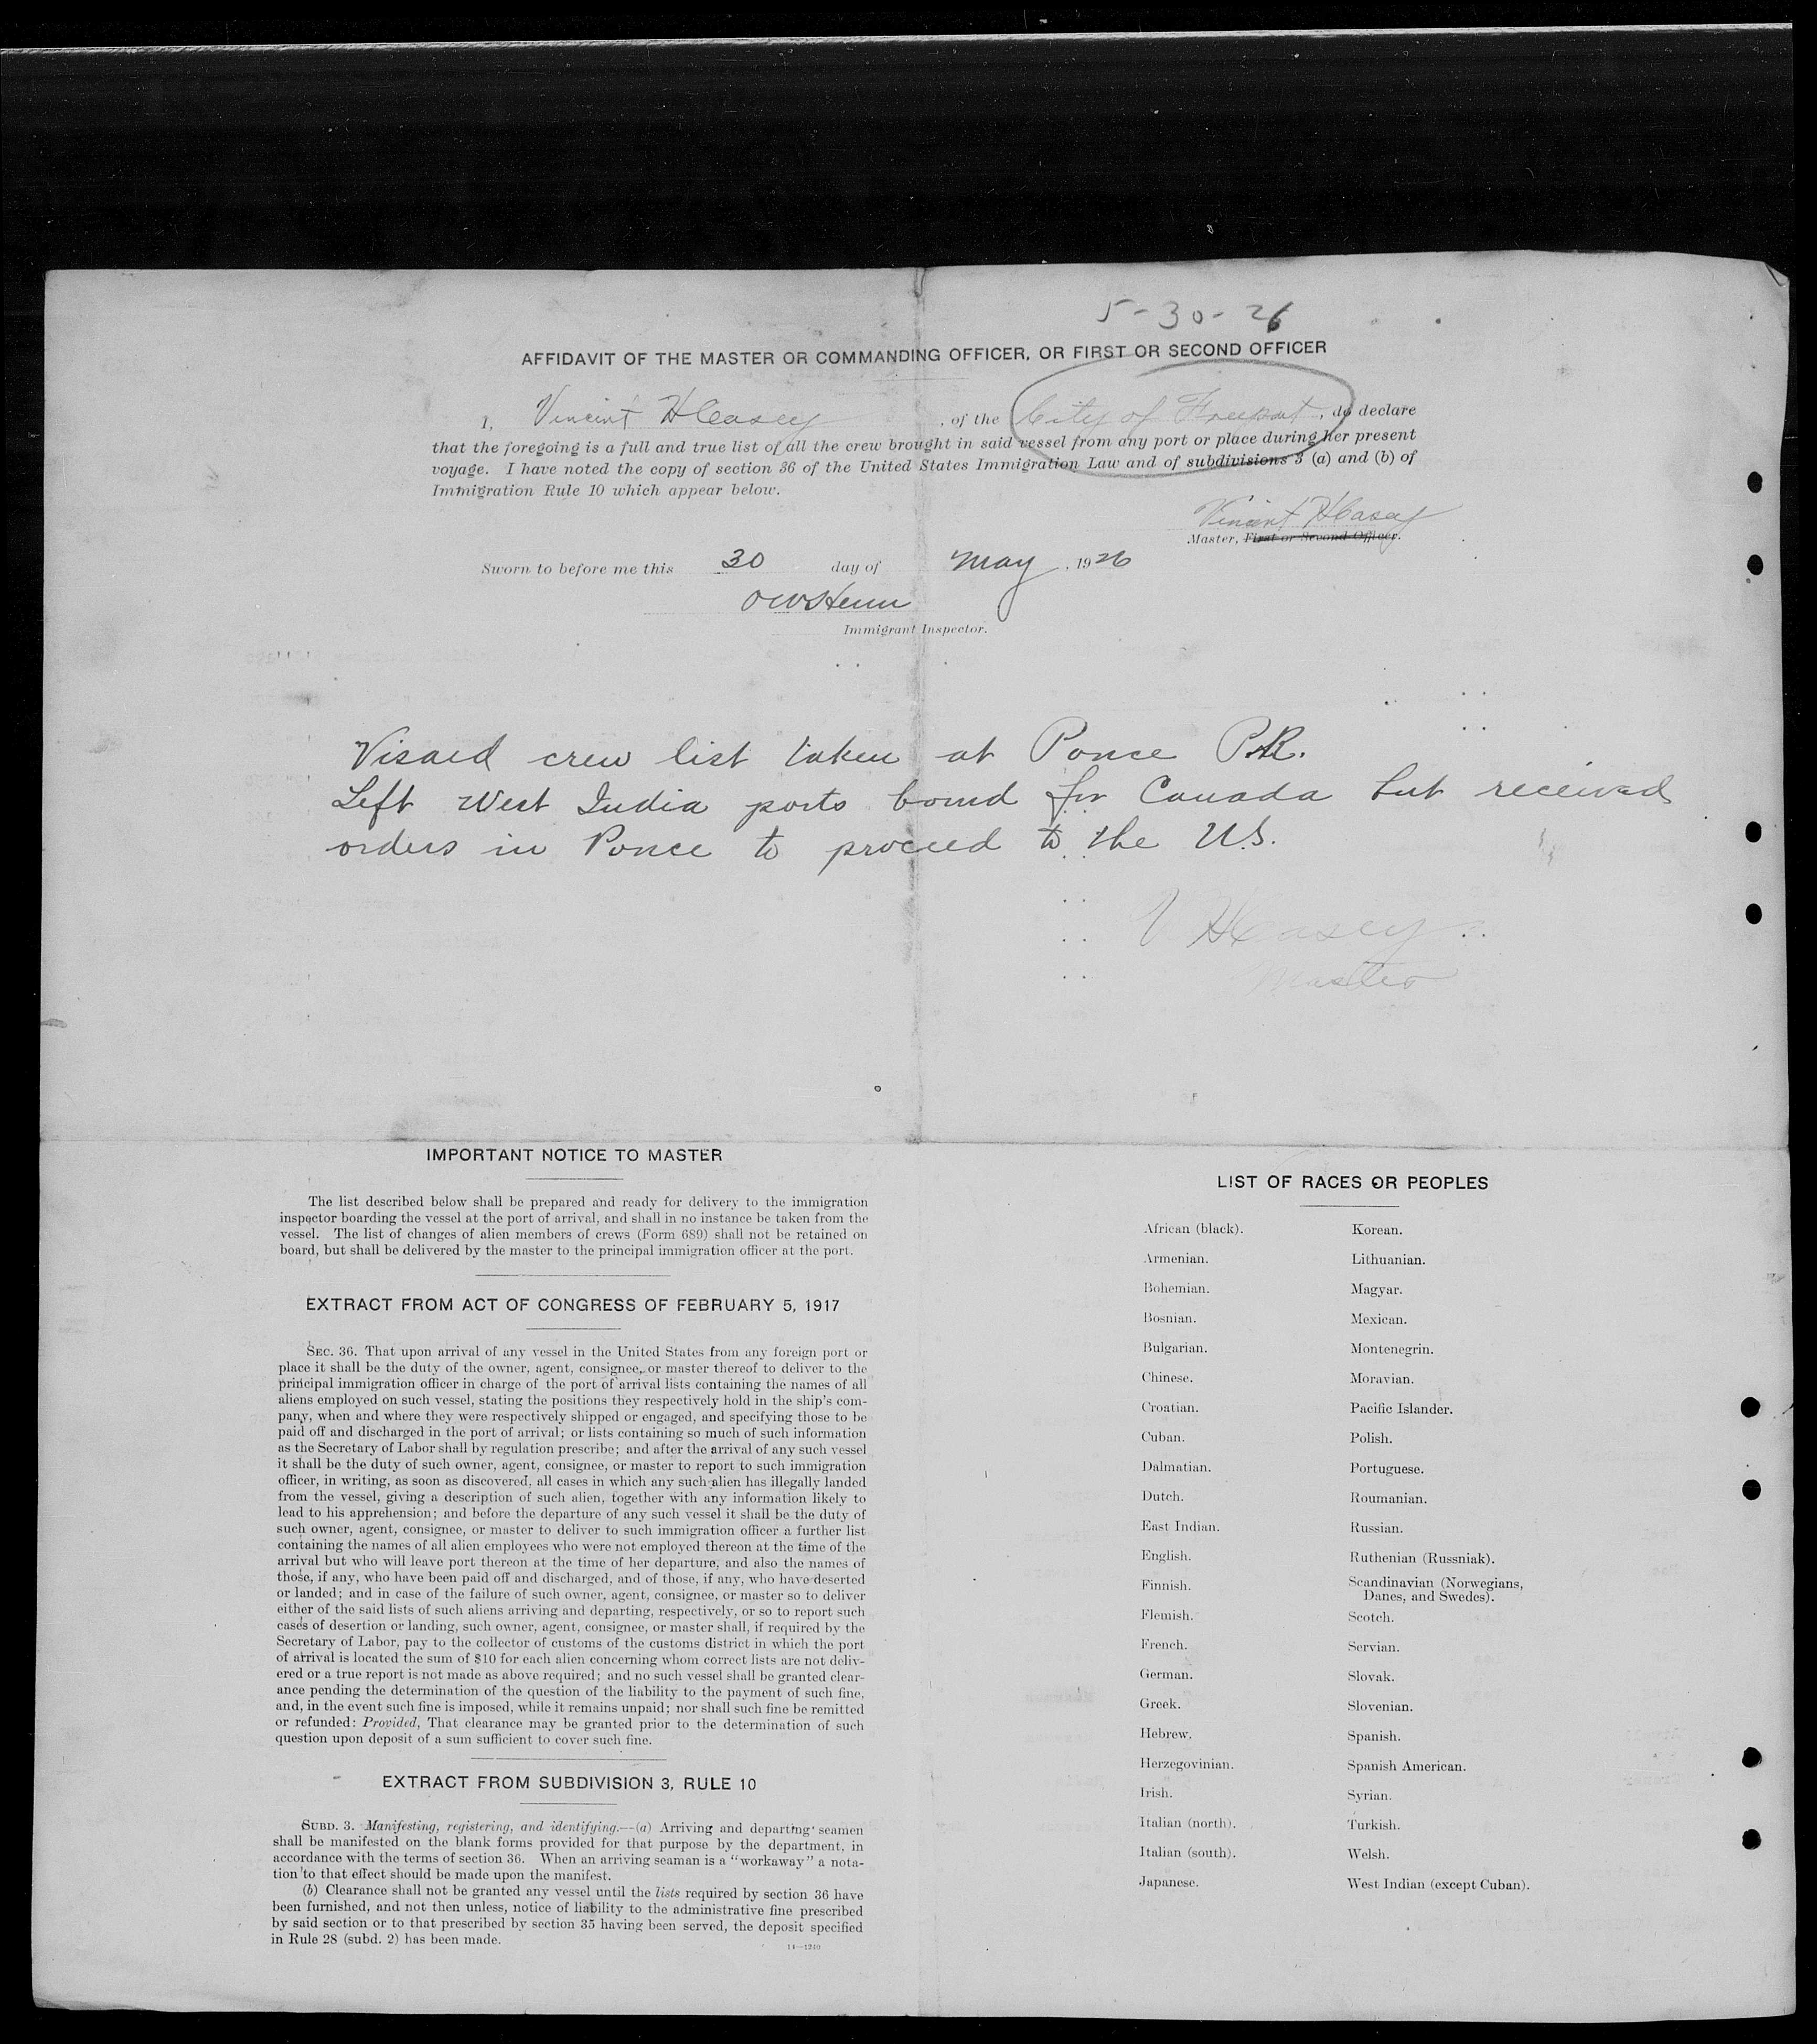 5-30-26
AFFIDAVIT OF THE MASTER OR COMMANDING OFFICER, OR FIRST OR SECOND OFFICER
I, Vincint H Casey, of the City of Freeport, do declare
that the foregoing is a full and true list of all the crew brought in said vessel from any port or place during her present
voyage. I have noted the copy of section 36 of the United States Immigration Law and of subdivisions 3 (a) and (b) of
Immigration Rule 10 which appear below.
Vincint H Casey
Master, First or Second Officer.
Sworn to before me this 30 day of May, 1926
Immigrant Inspector.
Visaed crew list taken at Ponce P.R.
Left West India ports bound for Canada but received
orders in Ponce to proceed to the U.S.
V H Casey
Master
IMPORTANT NOTICE TO MASTER
The list described below shall be prepared and ready for delivery to the immigration
inspector boarding the vessel at the port of arrival, and shall in no instance be taken from the
vessel. The list of changes of alien members of crews (Form 689) shall not be retained on
board, but shall be delivered by the master to the principal immigration officer at the port.
EXTRACT FROM ACT OF CONGRESS OF FEBRUARY 5, 1917
SEC. 36. That upon arrival of any vessel in the United States from any foreign port or
place it shall be the duty of the owner, agent, consignee, or master thereof to deliver to the
principal immigration officer in charge of the port of arrival lists containing the names of all
aliens employed on such vessel, stating the positions they respectively hold in the ship's com-
pany, when and where they were respectively shipped or engaged, and specifying those to be
paid off and discharged in the port of arrival; or lists containing so much of such information
as the Secretary of Labor shall by regulation prescribe; and after the arrival of any such vessel
it shall be the duty of such owner, agent, consignee, or master to report to such immigration
officer, in writing, as soon as discovered, all cases in which any such alien has illegally landed
from the vessel, giving a description of such alien, together with any information likely to
lead to his apprehension; and before the departure of any such vessel it shall be the duty of
such owner, agent, consignee, or master to deliver to such immigration officer a further list
containing the names of all alien employees who were not employed thereon at the time of the
arrival but who will leave port thereon at the time of her departure, and also the names of
those, if any, who have been paid off and discharged, and of those, if any, who have deserted
or landed; and in case of the failure of such owner, agent, consignee, or master so to deliver
either of the said lists of such aliens arriving and departing, respectively, or so to report such
cases of desertion or landing, such owner, agent, consignee, or master shall, if required by the
Secretary of Labor, pay to the collector of customs of the customs district in which the port
of arrival is located the sum of $10 for each alien concerning whom correct lists are not deliv-
ered or a true report is not made as above required; and no such vessel shall be granted clear-
ance pending the determination of the question of the liability to the payment of such fine,
and, in the event such fine is imposed, while it remains unpaid; nor shall such fine be remitted
or refunded: Provided, That clearance may be granted prior to the determination of such
question upon deposit of a sum sufficient to cover such fine.
EXTRACT FROM SUBDIVISION 3, RULE 10
SUBD. 3. Manifesting, registering, and identifying.—(a) Arriving and departing seamen
shall be manifested on the blank forms provided for that purpose by the department, in
accordance with the terms of section 36. When an arriving seaman is a "workaway" a nota-
tion to that effect should be made upon the manifest.
(b) Clearance shall not be granted any vessel until the lists required by section 36 have
been furnished, and not then unless, notice of liability to the administrative fine prescribed
by said section or to that prescribed by section 35 having been served, the deposit specified
in Rule 28 (subd. 2) has been made.
LIST OF RACES OR PEOPLES
African (black).
Armenian.
Bohemian.
Bosnian.
Bulgarian.
Chinese.
Croatian.
Cuban.
Dalmatian.
Dutch.
East Indian.
English.
Finnish.
Flemish.
French.
German.
Greek.
Hebrew.
Herzegovinian.
Irish.
Italian (north).
Italian (south).
Japanese.
Korean.
Lithuanian.
Magyar.
Mexican.
Montenegrin.
Moravian.
Pacific Islander.
Polish.
Portuguese.
Roumanian.
Russian.
Ruthenian (Russniak).
Scandinavian (Norwegians,
Danes, and Swedes).
Scotch.
Servian.
Slovak.
Slovenian.
Spanish.
Spanish American.
Syrian.
Turkish.
Welsh.
West Indian (except Cuban).